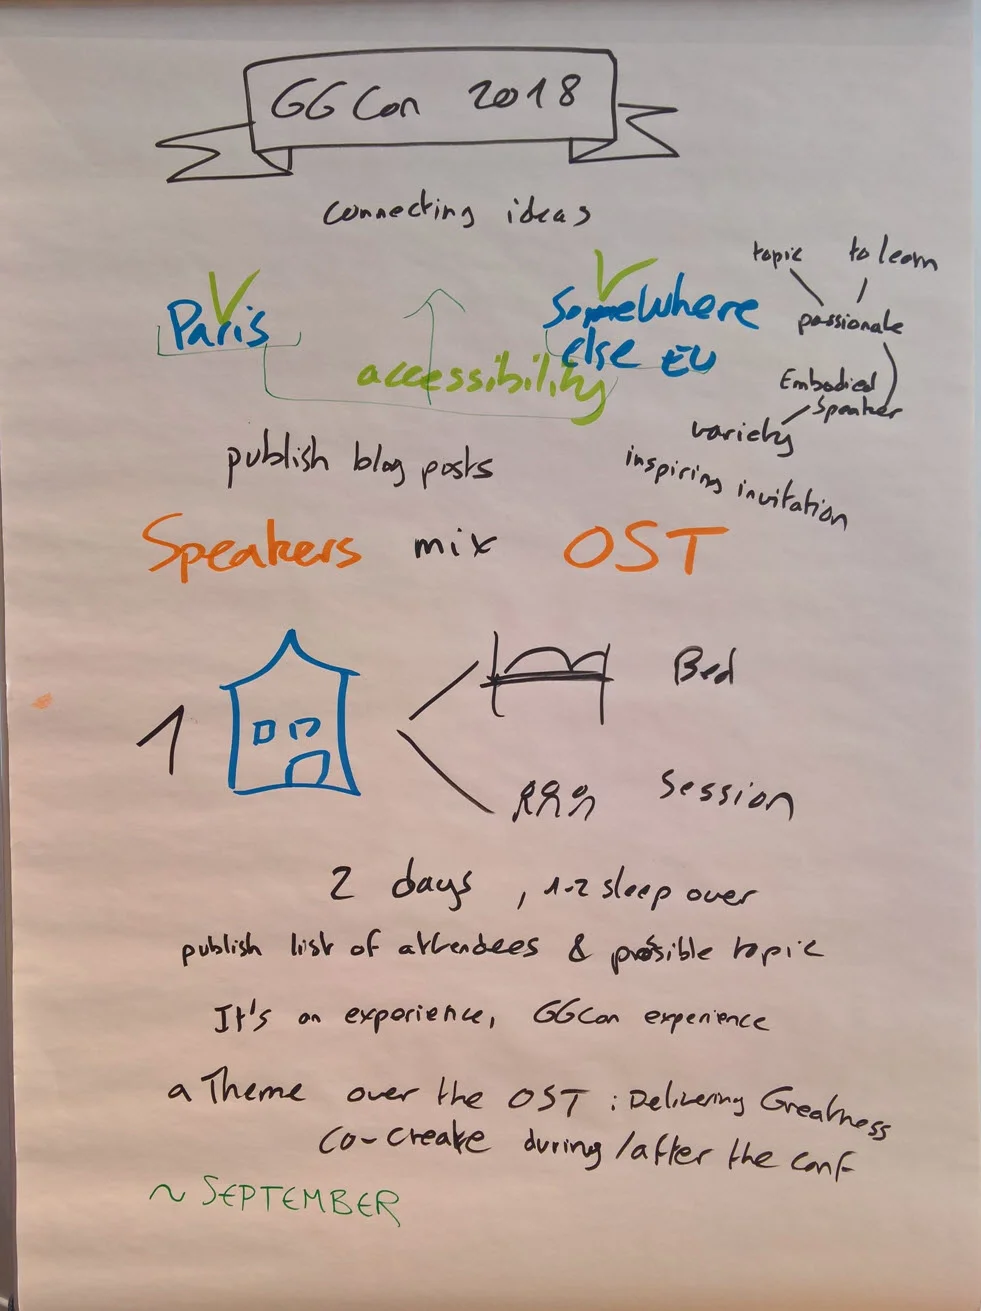 GG Con 2018
connecting ideas
topic
to learn
passionate
Paris
Somewhere
else EU
accessibility
Embodied
Speaker
variety
inspiring invitation
publish blog posts
Speakers mix OST
1
Bed
Session
2 days, 1-2 sleep over
publish list of attendees & possible topic
It's an experience, GGCon experience
a Theme over the OST : Delivering Greatness
co-create during / after the conf
~ SEPTEMBER